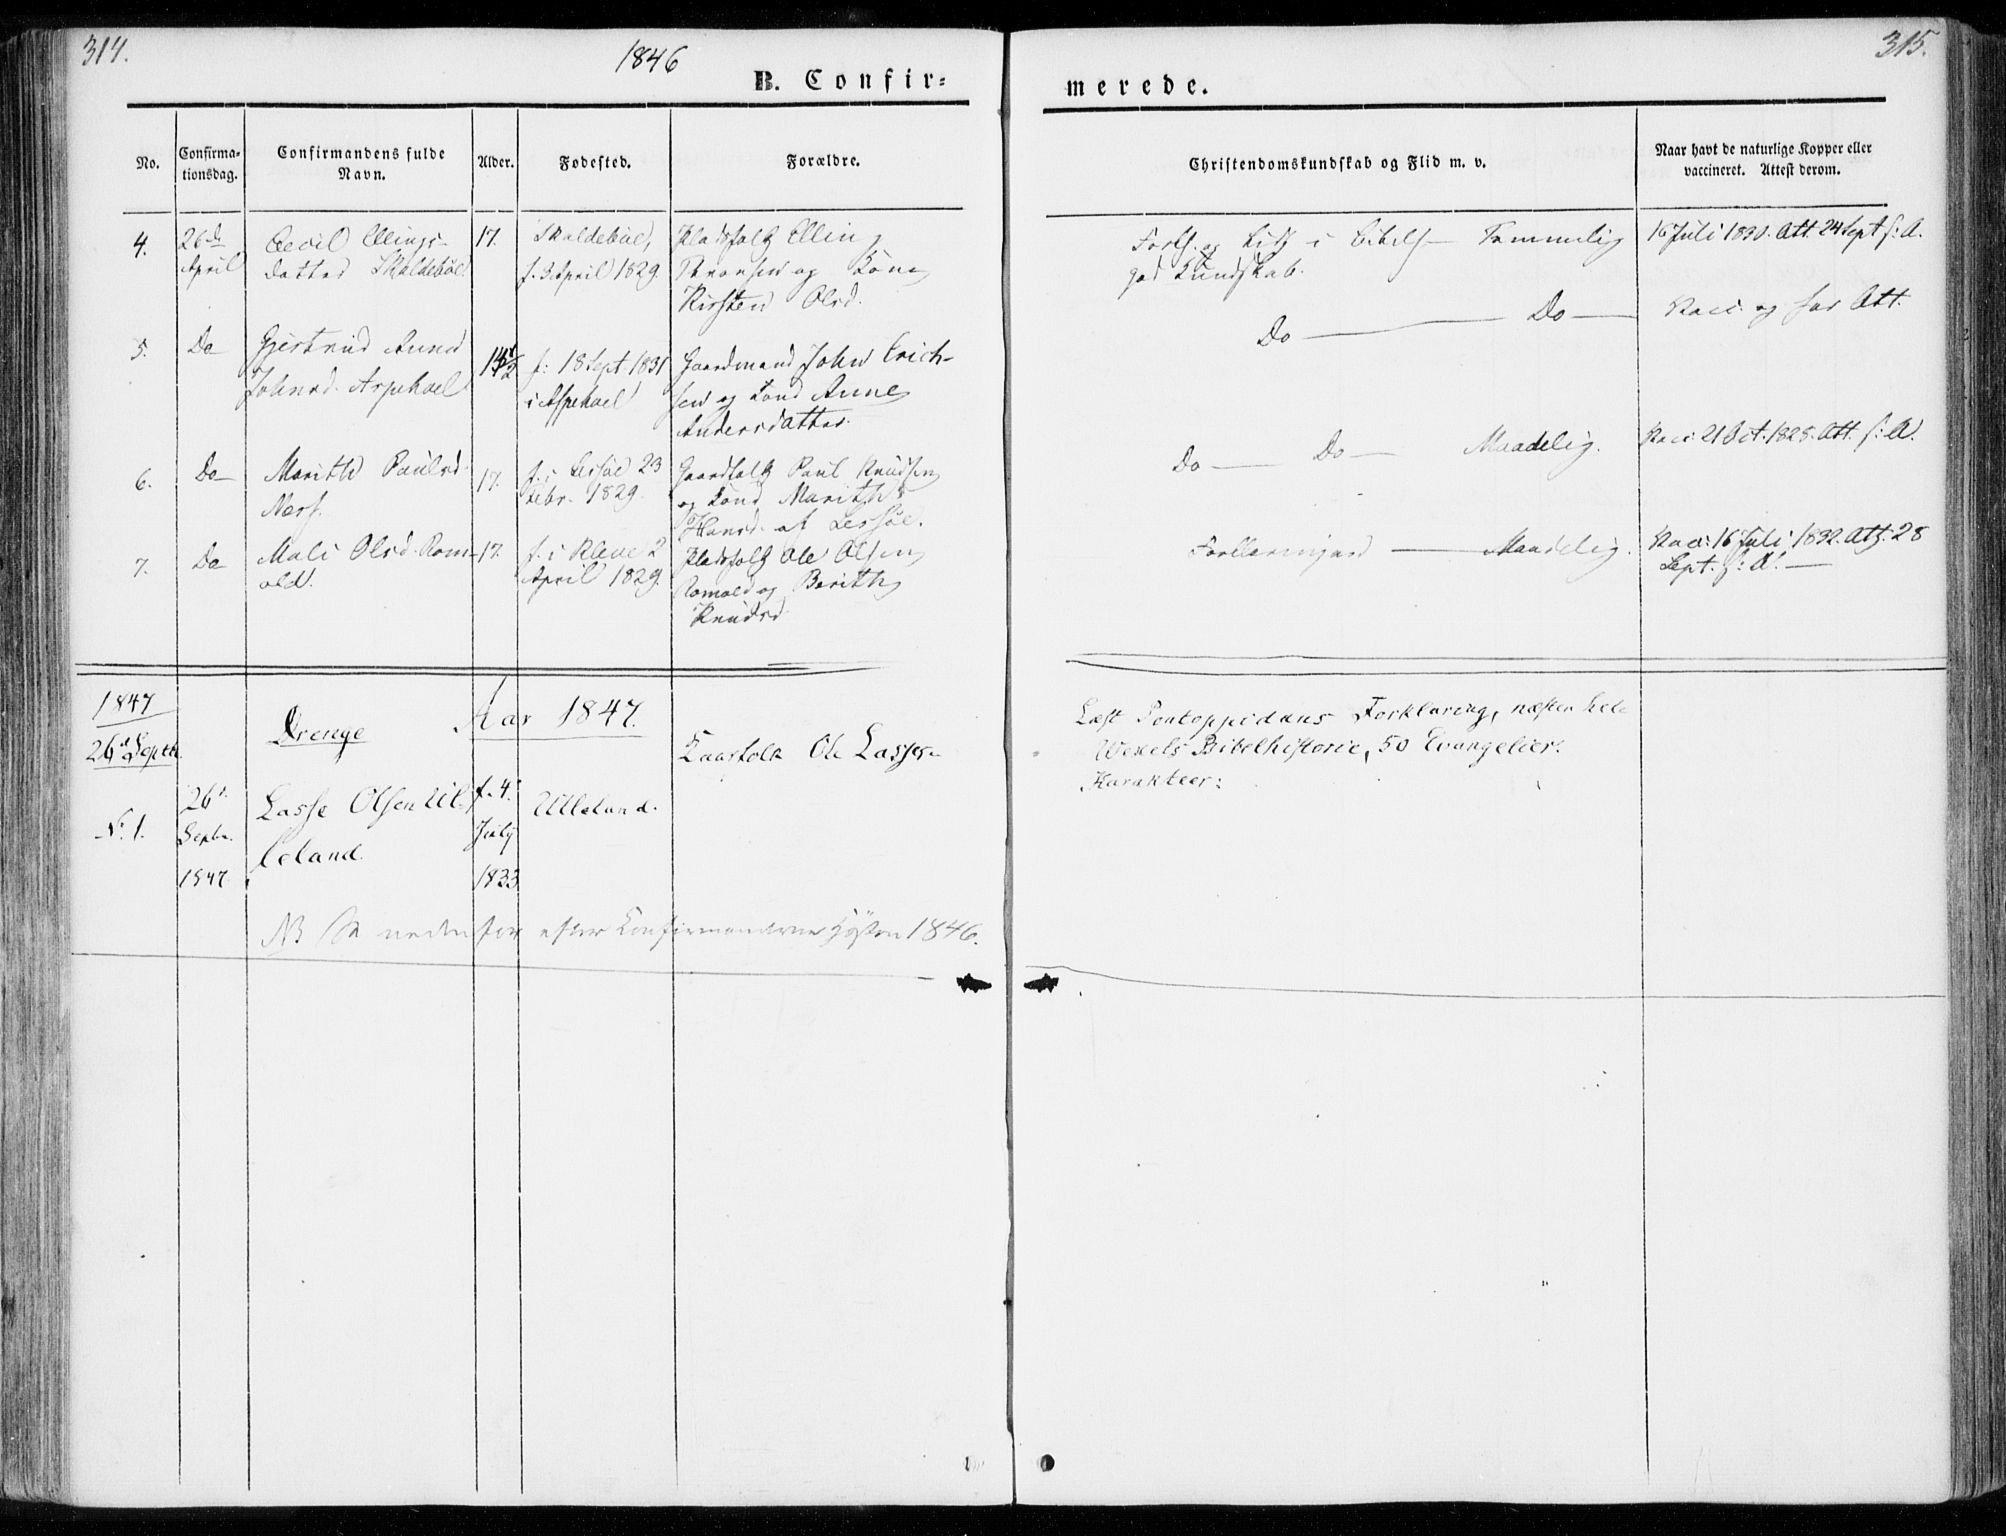 314.
1846
B. Confir=
No.
Confirma-
tionsdag.
Confirmandens fulde
Navn.
Alder.
Fødested.
Forældre.
4.
26de
April
Cecil Ellings-
datter Skaldebøl
17.
Skaldebøl,
f. 3 April 1829.
Pladsfolk Elling
og Kone
Kirsten Olsd.
5.
Do
Gjertrud Anna
Johnsd. Aspehoel
14½
f: 18 Sept. 1831
i Aspehoel
Gaardmand John Erich-
sen og Kone Anne
Andersdatter.
6.
Do
Marith Paulsd.
17.
f. i Lessøe 23
Febr. 1829.
Gaardfolk Paul Knudsen
og Kone Marith
Hansd. af Lessøe.
7.
Do
Mali Olsd. Rom-
old.
17.
f. i Kleve 2
April 1829.
Pladsfolk Ole Olsen
Romold og Berith
Knudsd.
1847
26de Septb.
Drenge
Aar 1847.
No. 1.
26de
Septbr.
1847
Lasse Olsen Ul-
leland.
f. 4.
July
1833
Ulleland.
Gaarfolk Ole Lassen
NB Se nedenfor efter Confirmanderne Høsten 1846.
315.
merede.
Christendomskundskab og Flid m. v.
Naar havt de naturlige Kopper eller
vaccineret. Attest derom.
Forkl. og Lidt i Bibelh — Temmelig
god Kundskab.
16 Juli 1830. Att. 24 Sept. s: A.
Do — Do —
Vacc. og har Att.
Do — Do — Maadelig.
Vacc. 21 Oct. 1828. Att. s: A.
Forklaringen — Maadelig.
Vacc: 16 Juli 1832. Att. 28
Sept. s: A. —
Læst Pontoppidans Forklaring, næsten hele
Wexels Bibelhistorie, 50 Evangelier.
Karakteer: